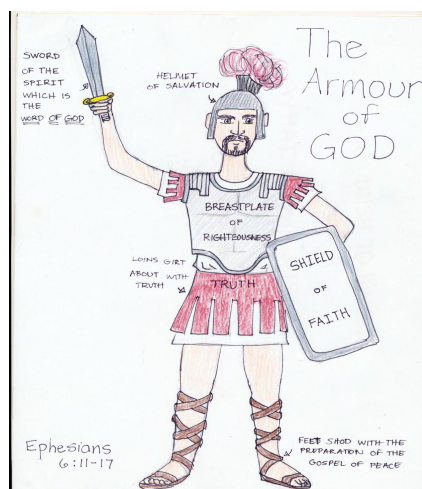 The
Armour
of
GOD
SWORD
OF THE
SPIRIT
WHICH IS
THE
WORD OF GOD
HELMET
OF SALVATION
BREASTPLATE
OF
RIGHTEOUSNESS
LOINS GIRT
ABOUT WITH
TRUTH
TRUTH
SHIELD
OF
FAITH
FEET SHOD WITH THE
PREPARATION OF THE
GOSPEL OF PEACE
Ephesians
6:11-17